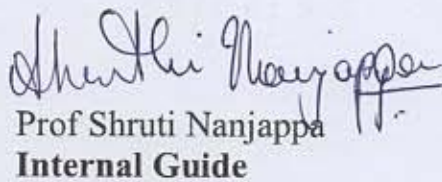 Shruthi Nanjappa
Prof Shruti Nanjappa
Internal Guide